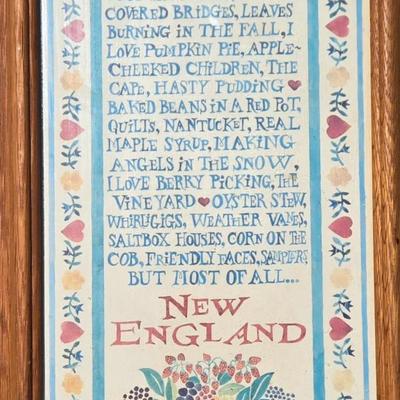 COVERED BRIDGES, LEAVES
BURNING IN THE FALL, I
LOVE PUMPKIN PIE, APPLE-
CHEEKED CHILDREN, THE
CAPE, HASTY PUDDING ♥
BAKED BEANS IN A RED POT,
QUILTS, NANTUCKET, REAL
MAPLE SYRUP, MAKING
ANGELS IN THE SNOW,
I LOVE BERRY PICKING, THE
VINEYARD ♥ OYSTER STEW,
WHIRLIGIGS, WEATHER VANES,
SALTBOX HOUSES, CORN ON THE
COB, FRIENDLY FACES, SAMPLERS
BUT MOST OF ALL...
NEW
ENGLAND